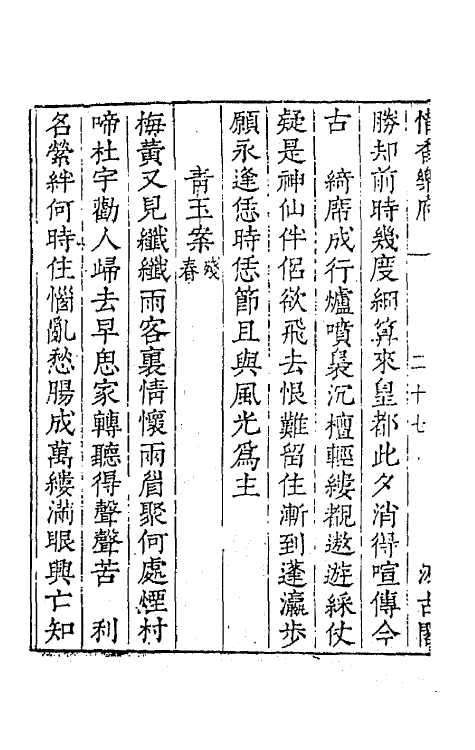 惜香樂府 一 二十七 汲古閣
勝却前時幾度細算來皇都此夕消得喧傳今
古　綺席成行爐噴裊沉檀輕縷覩遨遊綵仗
疑是神仙伴侶欲飛去恨難留住漸到蓬瀛步
願永逢恁時恁節且與風光爲主
青玉案 殘春
梅黃又見纖纖雨客裏情懷兩眉聚何處煙村
啼杜宇勸人歸去早思家轉聽得聲聲苦　利
名縈絆何時住惱亂愁腸成萬縷滿眼興亡知